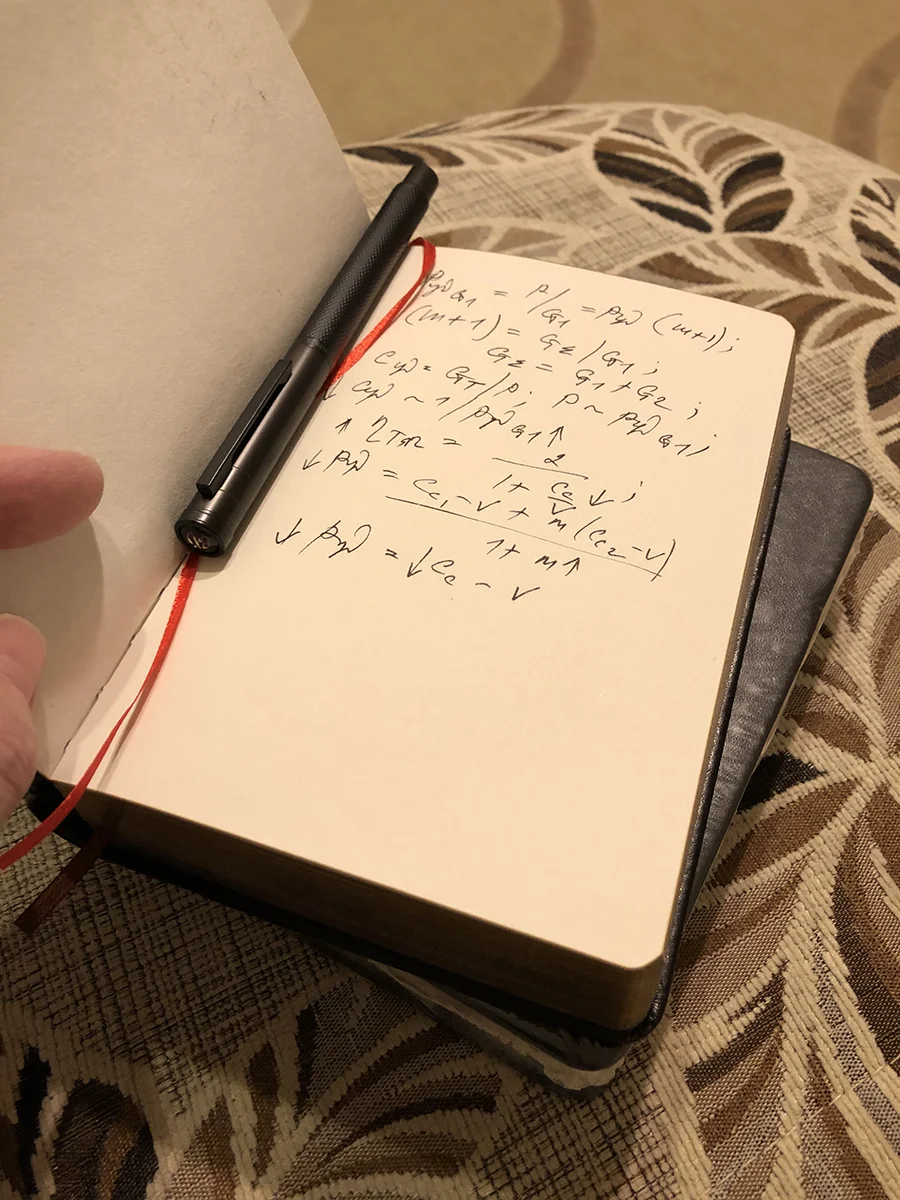 Pуд G1 = P/G1 = Pуд (m+1);
(m+1) = GΣ/G1;
GΣ = G1 + G2;
Cуд = GT/P; P ~ Pуд G1;
↓ Cуд ~ 1/Pуд G1↑
↑ ηтяг = 2 / (1 + Cc/V ↓);
↓ Pуд = (Cc1 - V + m (Cc2 - V)) / (1 + m↑)
↓ Pуд = ↓Cc - V